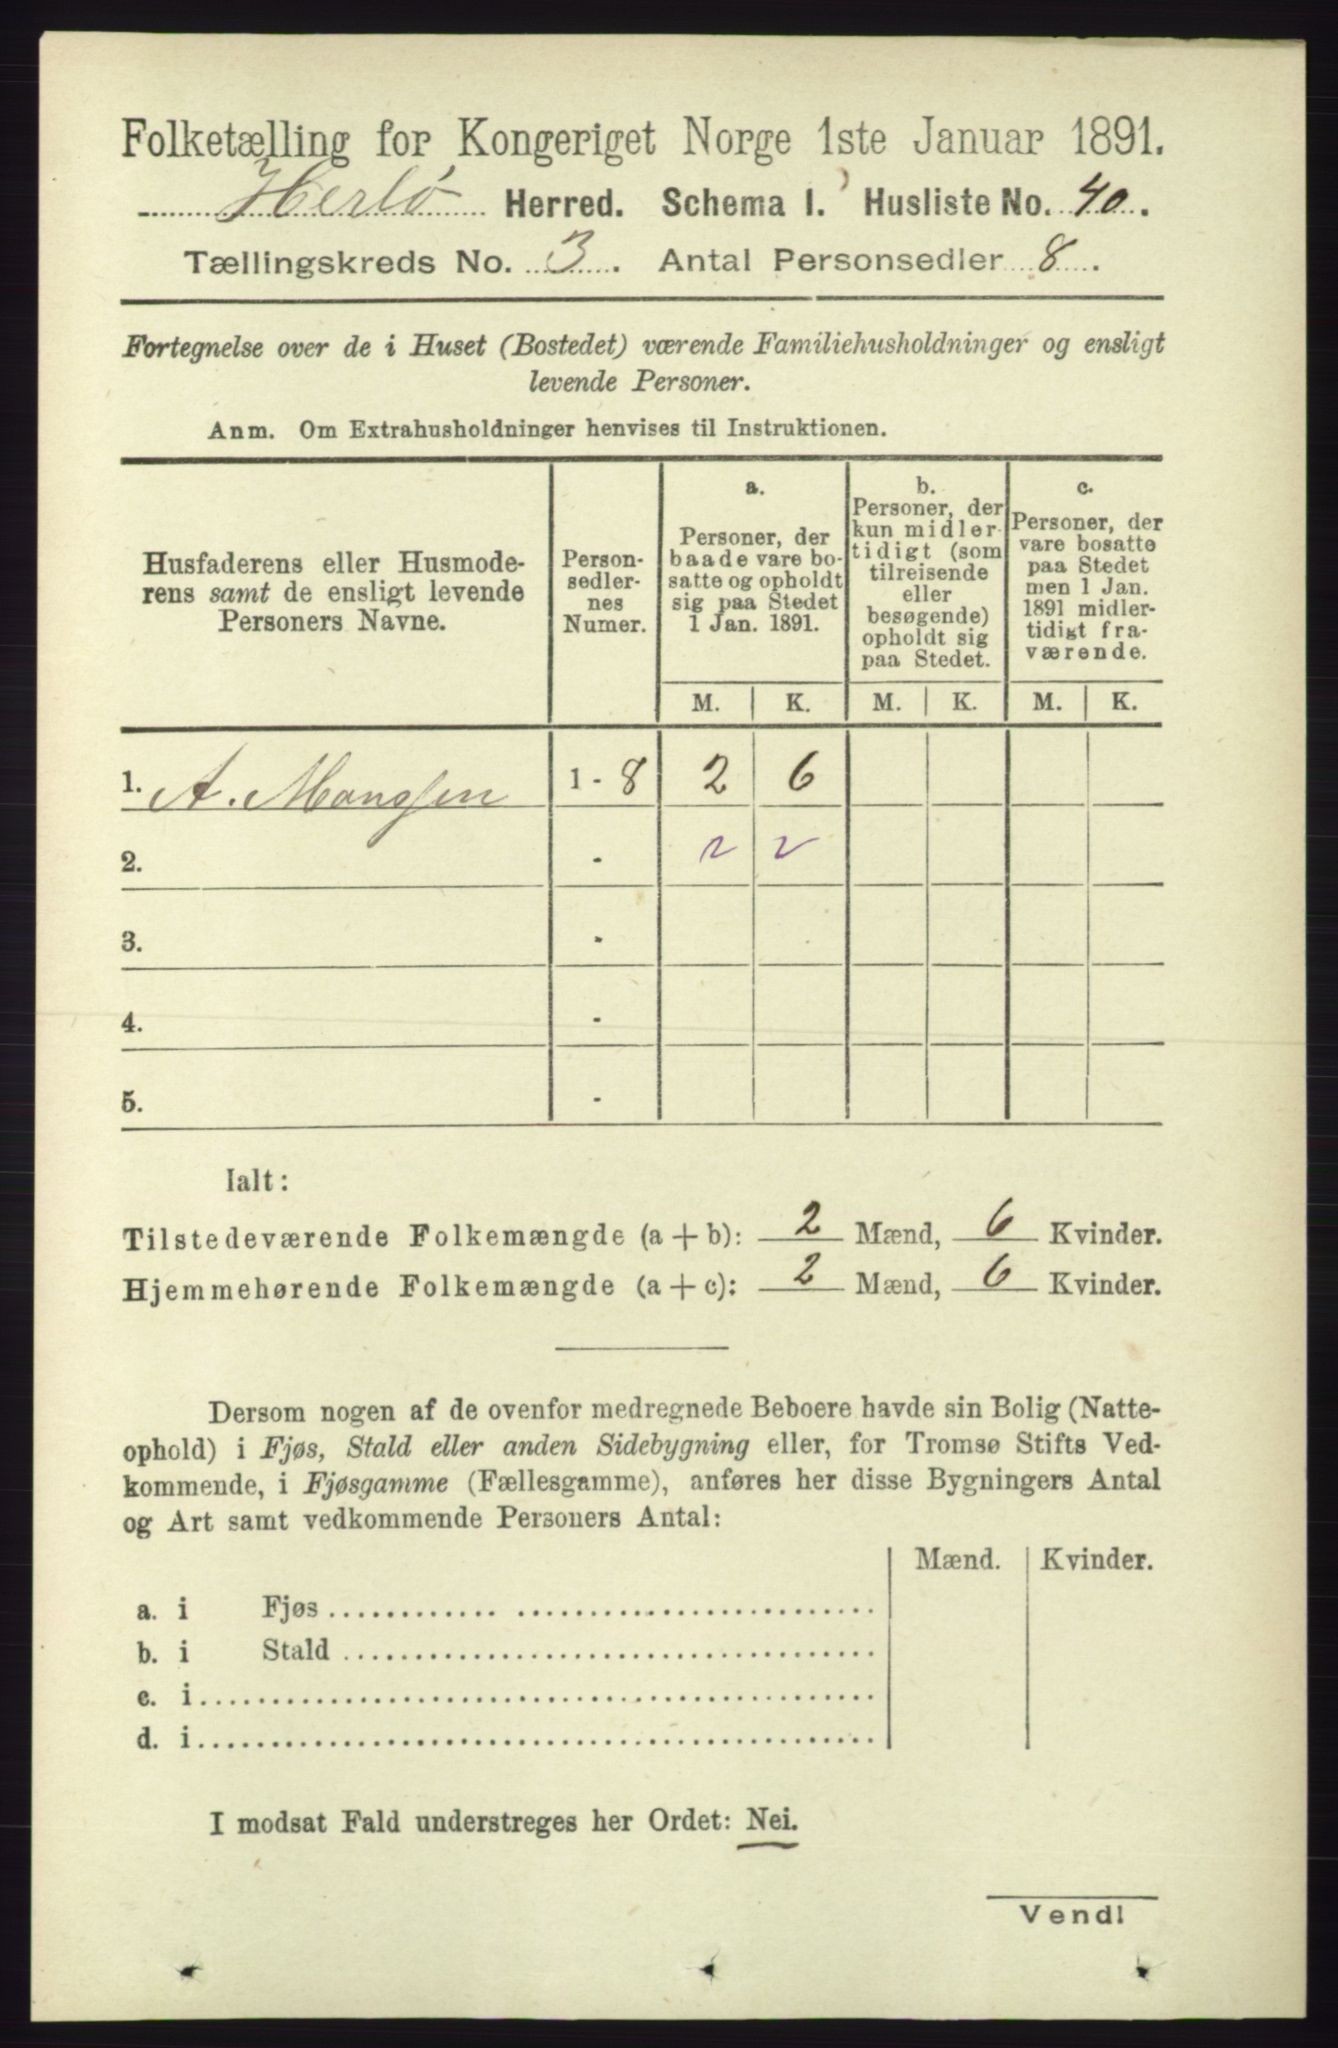 Folketælling for Kongeriget Norge 1ste Januar 1891.
Herlø Herred. Schema I. Husliste No. 40.
Tællingskreds No. 3. Antal Personsedler 8.
Fortegnelse over de i Huset (Bostedet) værende Familiehusholdninger og ensligt
levende Personer.
Anm. Om Extrahusholdninger henvises til Instruktionen.
Husfaderens eller Husmode-
rens samt de ensligt levende
Personers Navne.
Person-
sedler-
nes
Numer.
a.
Personer, der
baade vare bo-
satte og opholdt
sig paa Stedet
1 Jan. 1891.
b.
Personer, der
kun midler-
tidigt (som
tilreisende
eller
besøgende)
opholdt sig
paa Stedet.
c.
Personer, der
vare bosatte
paa Stedet
men 1 Jan.
1891 midler-
tidigt fra-
værende.
M. K. M. K. M. K.
1. A. Monsjen 1 - 8 2 6
2. - 2 2
3. -
4. -
5. -
Ialt:
Tilstedeværende Folkemængde (a + b): 2 Mænd, 6 Kvinder.
Hjemmehørende Folkemængde (a + c): 2 Mænd, 6 Kvinder.
Dersom nogen af de ovenfor medregnede Beboere havde sin Bolig (Natte-
ophold) i Fjøs, Stald eller anden Sidebygning eller, for Tromsø Stifts Ved-
kommende, i Fjøsgamme (Fællesgamme), anføres her disse Bygningers Antal
og Art samt vedkommende Personers Antal:
Mænd. Kvinder.
a. i Fjøs
b. i Stald
c. i
d. i
I modsat Fald understreges her Ordet: Nei.
Vend!